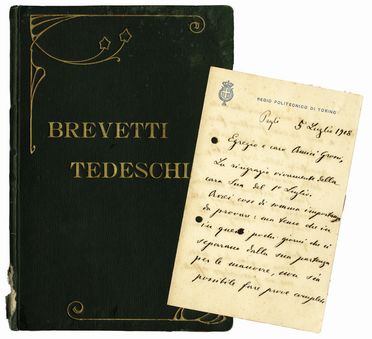 BREVETTI
TEDESCHI
REGIO POLITECNICO DI TORINO
5 Luglio 1908
Egregio e caro
La ringrazio vivamente della
cara Sua del 1° Luglio.
Avrei cose di somma importanza
da provare: ma temo che in
in questi pochi giorni che ci
separano dalla sua partenza
per le manovre, non sia
possibile fare prove complete